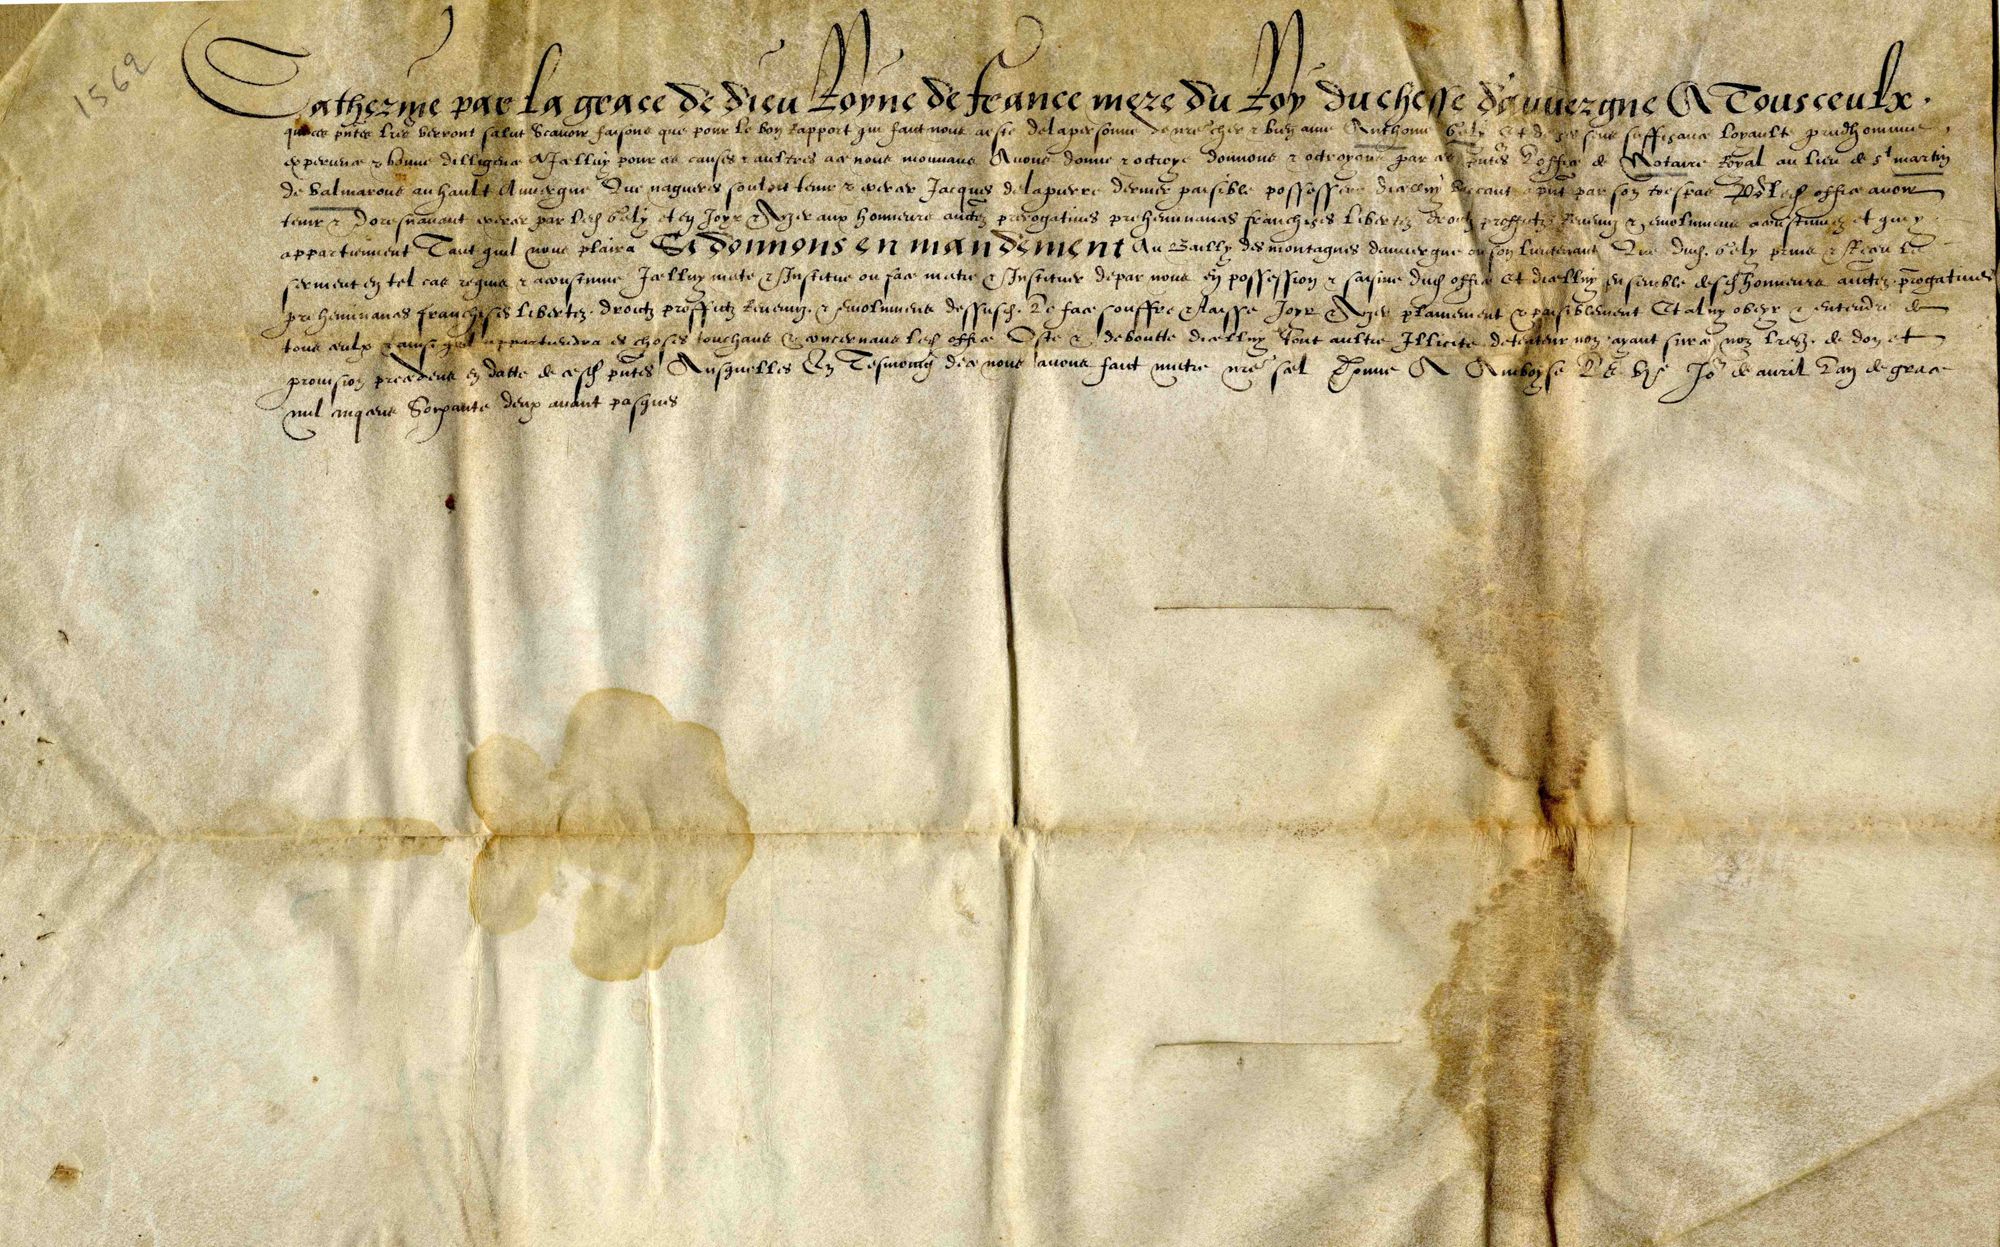 1562
Catherine par la grace de dieu Royne de france mere du Roy duchesse dauvergne A Tous ceulx
que ces pntes lres verront salut Scavoir faisons que pour le bon rapport qui faict nous a este de la personne de nre cher & bien ame Anthoine Gely Et de ses sens souffisance loyaulte preudhommie
experience & bonne dilligence A Icelluy pour ces causes & aultres a ce nous mouvans Avons donne & octroye donnons & octroyons par ces pntes loffice de Notaire Royal au lieu de st martin
de Valmarous au hault Auvergne Que nagueres souloit tenir & exercer Jacques delapierre dernier paisible possesseur dicelluy vaccant a pnt par son trespas Pour led office avoir
tenir & doresnavant exercer par led Gely et en Joyr & User aux honneurs auctez prerogatives preheminances franchises libertez droictz proffictz Revenuz & emolumens acoustumez et qui y
appartiennent Tant quil nous plaira Et donnons en mandement Au Bailly des montagnes dauvergne ou son lieutenant Que dud. Gely prins & Receu le
serment en tel cas requis & acoustume Icelluy mete & Institue ou face metre & Instituer de par nous en possession & saisine dud office Et dicelluy ensemble desd honneurs auctez prerogatives
preheminances franchises libertez droictz proffictz Revenuz & emolumens dessusd. Le face souffre & laisse Joyr & User plainement & paisiblement Et a luy obeyr & entendre de
tous ceulx & ainsi quil appartiendra es choses touchans & concernans led office Oste & deboutte dicelluy tout aultre Illicite detenteur non ayant sur ce noz lres de don et
provision precedens en datte de cesd pntes Ausquelles En Tesmoing de ce nous avons faict mettre nre scel Donne A Amboyse Le Jor de avril Lan de grace
mil cinq cens Soixante deux avant pasques